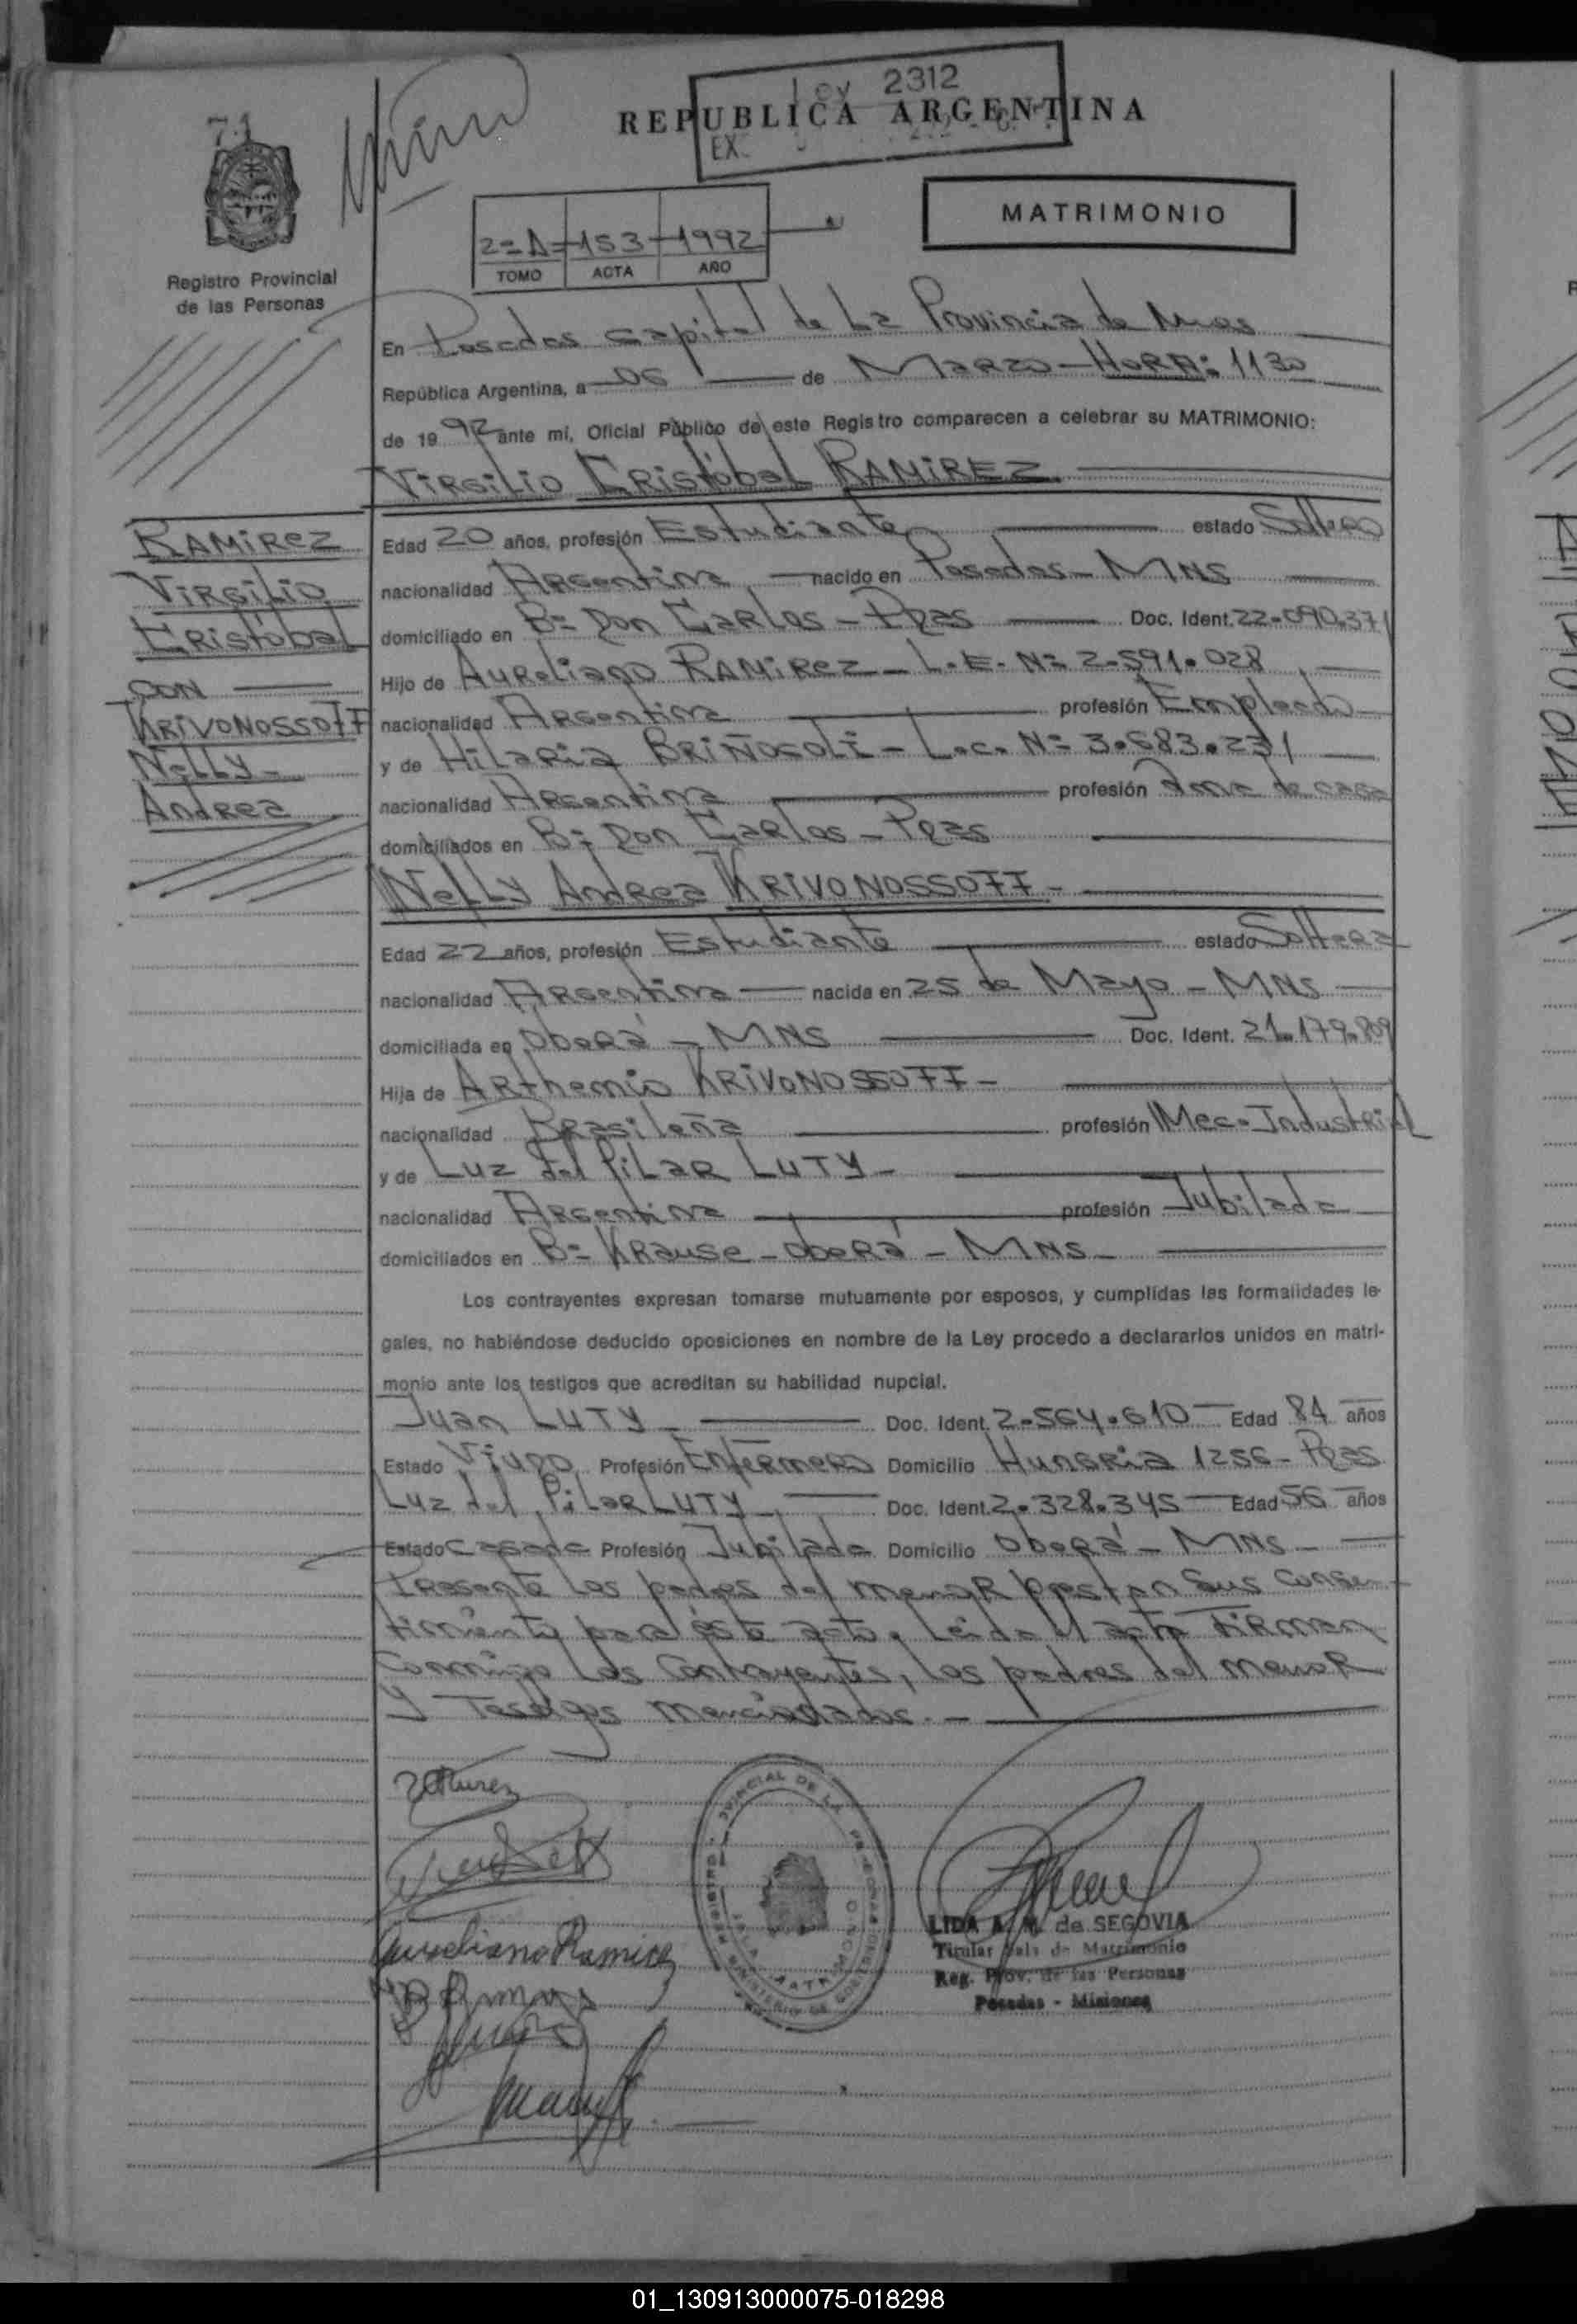 71
Ley 2312
REPUBLICA ARGENTINA
EX.
MATRIMONIO
2=A=153-1992
TOMO ACTA AÑO
Registro Provincial
de las Personas
En Posadas Capital de La Provincia de Mnes
República Argentina, a 06 de Marzo - HORA: 1130
de 1992 ante mí, Oficial Público de este Registro comparecen a celebrar su MATRIMONIO:
Virgilio Cristóbal RAMIREZ
RAMIREZ
Virgilio
Cristóbal
CON
KRIVONOSSOFF
Nelly-
Andrea
Edad 20 años, profesión Estudiante estado Soltero
nacionalidad Argentina nacido en Posadas - MNS
domiciliado en B= Don Carlos - Pdas Doc. Ident. 22.090.371
Hijo de Aureliano RAMIREZ - L.E. N= 2.591.028
nacionalidad Argentina profesión Empleado
y de Hilaria BRIÑOCOLI - L.c. N= 3.683.231
nacionalidad Argentina profesión Ama de casa
domiciliados en B= Don Carlos - Pdas
Nelly Andrea KRIVONOSSOFF -
Edad 22 años, profesión Estudiante estado Soltera
nacionalidad Argentina nacida en 25 de Mayo - MNS
domiciliada en Oberá - MNS Doc. Ident. 21.179.809
Hija de Arthemio KRIVONOSSOFF -
nacionalidad Brasileña profesión Mec. Industrial
y de Luz del Pilar LUTY -
nacionalidad Argentina profesión Jubilada
domiciliados en B= Krause - Oberá - MNS
Los contrayentes expresan tomarse mutuamente por esposos, y cumplidas las formalidades le-
gales, no habiéndose deducido oposiciones en nombre de la Ley procedo a declararlos unidos en matri-
monio ante los testigos que acreditan su habilidad nupcial.
Juan LUTY - Doc. Ident. 2.564.610 Edad 84 años
Estado Viudo Profesión Enfermero Domicilio Hungria 1256 - Pdas
Luz del Pilar LUTY Doc. Ident. 2.328.345 Edad 56 años
Estado Casada Profesión Jubilada Domicilio Oberá - MNS -
Presente los padres del menor prestan sus consen-
timiento para éste acto, Leida el acta Firman
Conmigo Los Contrayentes, los padres del menor
y Testigos mencionados. -
Aureliano Ramirez
LIDA A. M. de SEGOVIA
Titular Sala de Matrimonio
Reg. Prov. de las Personas
Posadas - Misiones
01_130913000075-018298